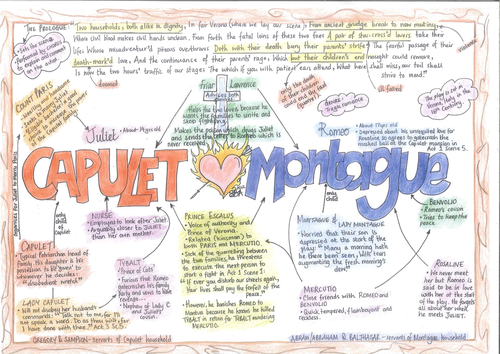 THE PROLOGUE: "Two households, both alike in dignity, In fair Verona (where we lay our scene), From ancient grudge break to new mutiny,
Where civil blood makes civil hands unclean. From forth the fatal loins of these two foes A pair of star-cross'd lovers take their
life: Whose misadventur'd piteous overthrows Doth with their death bury their parents' strife. The fearful passage of their
death-mark'd love, And the continuance of their parents' rage, Which but their children's end nought could remove,
Is now the two hours' traffic of our stage. The which if you with patient ears attend, What here shall miss, our toil shall
strive to mend."
Sets the scene
Performed by chorus to
explain and comment
on the action
doomed
ill fated
Genre: Tragic romance
The play is set in
Verona, Italy in the
COUNT PARIS
Friar Lawrence
Advises both
Helps the two lovers because he
wants the families to unite and
stop fighting.
Makes the potion which drugs Juliet
and sends the letter to Romeo which is
never received.
Juliet
Romeo
Depressed about his unrequited love for
Rosaline so agrees to gatecrash the
masked ball at the Capulet mansion in
Act 1 Scene 5.
CAPULET
Montague
only
child
of
Capulet
only
child
CAPULET
Typical Patriarchal head of
family. His daughter is his
possession to be 'given' to
whomever he chooses.
"disobedient wretch"
LADY CAPULET
Will not disobey her husband's
commands: "Talk not to me, for I'll
not speak a word. Do as thou wilt, for
I have done with thee." Act 3 Sc5.
NURSE
Employed to look after Juliet
Arguably closer to JULIET
than her own mother.
TYBALT
"Prince of Cats"
Furious that Romeo
gatecrashes his family
party and vows to
take revenge
Nephew of Lady C
and Juliet's
cousin.
PRINCE ESCALUS
Voice of authority and
Prince of Verona.
Related (kinsman) to
both PARIS and MERCUTIO.
Sick of the quarrelling between
the two families, he threatens
to execute the next person to
start a fight in Act 3 Scene 1:
"If ever you disturb our streets again,
Your lives shall pay the forfeit of the
peace."
However, he banishes Romeo to
Mantua because he knows he killed
TYBALT in return for TYBALT murdering
MERCUTIO.
MONTAGUE &
LADY MONTAGUE
Worried that their son is
depressed at the start of the
play: "Many a morning hath
he there been seen, With tears
augmenting the fresh morning's
dew."
MERCUTIO
Close friends with ROMEO and
BENVOLIO
Quick-tempered, flamboyant and
reckless.
BENVOLIO
Romeo's cousin
Tries to keep the
peace
ROSALINE
We never meet
her but Romeo
is said to be in love
with her at the start
of the play. He forgets
all about her when
he meets JULIET.
GREGORY & SAMPSON - servants of Capulet household
ABRAM/ABRAHAM & BALTHASAR - servants of Montague household